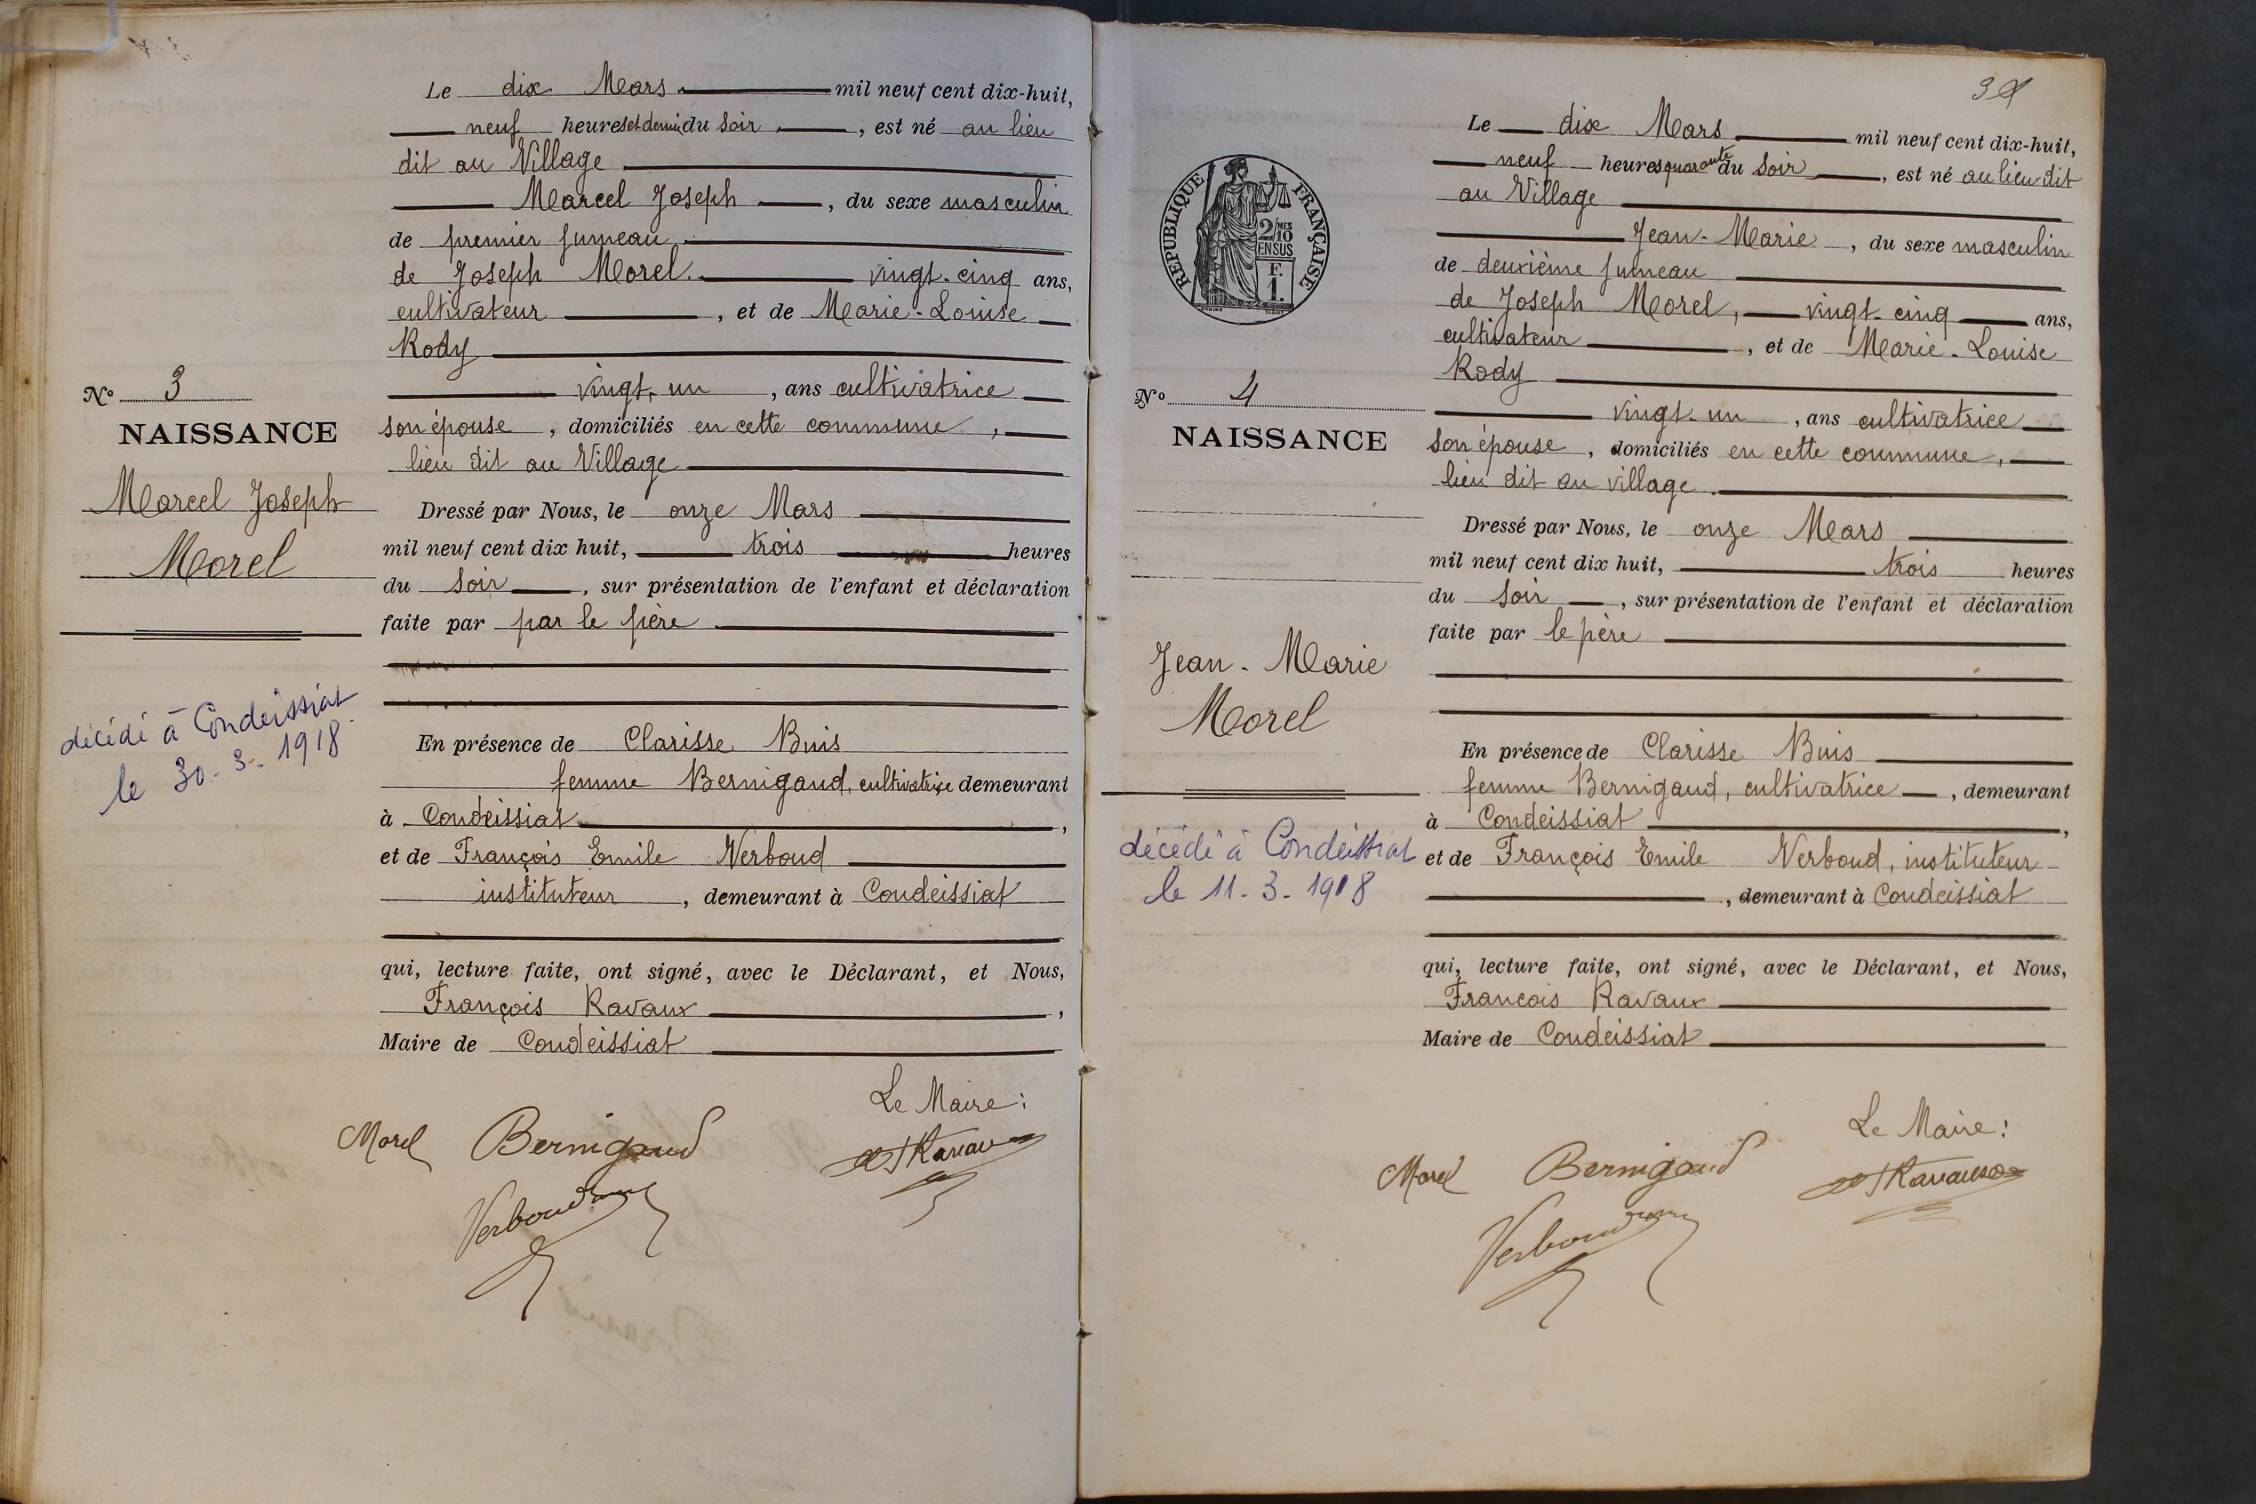 Le dix Mars mil neuf cent dix-huit,
neuf heures et demie du soir, est né au lieu
dit au Village
Marcel Joseph, du sexe masculin
de premier jumeau
de Joseph Morel. vingt-cinq ans,
cultivateur, et de Marie-Louise
Rody
vingt-un, ans cultivatrice
son épouse, domiciliés en cette commune,
lieu dit au Village
Dressé par Nous, le onze Mars
mil neuf cent dix huit, trois heures
du soir, sur présentation de l'enfant et déclaration
faite par par le père
En présence de Clarisse Buis
femme Bernigaud, cultivatrice demeurant
à Condeissiat,
et de François Emile Verboud
instituteur, demeurant à Condeissiat
qui, lecture faite, ont signé, avec le Déclarant, et Nous,
François Ravaux,
Maire de Condeissiat
Le Maire :
Morel Bernigaud Ravaux
Verboud
No 3
NAISSANCE
Marcel Joseph
Morel
décédé à Condeissiat
le 30-3-1918
Le dix Mars mil neuf cent dix-huit,
neuf heures quarante du soir, est né au lieu dit
au Village
Jean-Marie, du sexe masculin
de deuxième jumeau
de Joseph Morel, vingt-cinq ans,
cultivateur, et de Marie-Louise
Rody
vingt-un, ans cultivatrice
son épouse, domiciliés en cette commune,
lieu dit au village.
Dressé par Nous, le onze Mars
mil neuf cent dix huit, trois heures
du soir, sur présentation de l'enfant et déclaration
faite par le père
En présence de Clarisse Buis
femme Bernigaud, cultivatrice, demeurant
à Condeissiat,
et de François Emile Verboud, instituteur
, demeurant à Condeissiat
qui, lecture faite, ont signé, avec le Déclarant, et Nous,
Francois Ravaux
Maire de Condeissiat
Le Maire :
Morel Bernigaud Ravaux
Verboud
RÉPUBLIQUE FRANÇAISE
2/MES
10
EN SUS
F.
1.
No 4
NAISSANCE
Jean-Marie
Morel
décédé à Condeissiat
le 11-3-1918